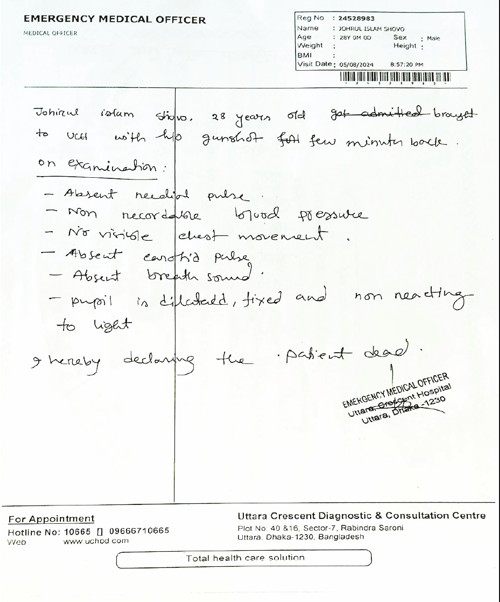 EMERGENCY MEDICAL OFFICER
MEDICAL OFFICER
Reg No : 24528983
Name : JOHIRUL ISLAM SHOVO
Age : 28Y 0M 0D Sex : Male
Weight : Height :
BMI :
Visit Date : 05/08/2024 8:57:20 PM
Johirul islam shovo, 28 years old got admitted brought
to UCH with h/o gunshot few minutes back.
on examination:
- Absent radial pulse.
- Non recordable blood pressure
- No visible chest movement.
- Absent carotid pulse
- Absent breath sound.
- pupil is dilated, fixed and non reacting
to light
I hereby declaring the patient dead.
EMERGENCY MEDICAL OFFICER
Uttara Crescent Hospital
Uttara, Dhaka-1230
For Appointment
Hotline No: 10665 [] 09666710665
Web www.uchbd.com
Uttara Crescent Diagnostic & Consultation Centre
Plot No. 40 &16, Sector-7, Rabindra Saroni
Uttara, Dhaka-1230, Bangladesh
Total health care solution